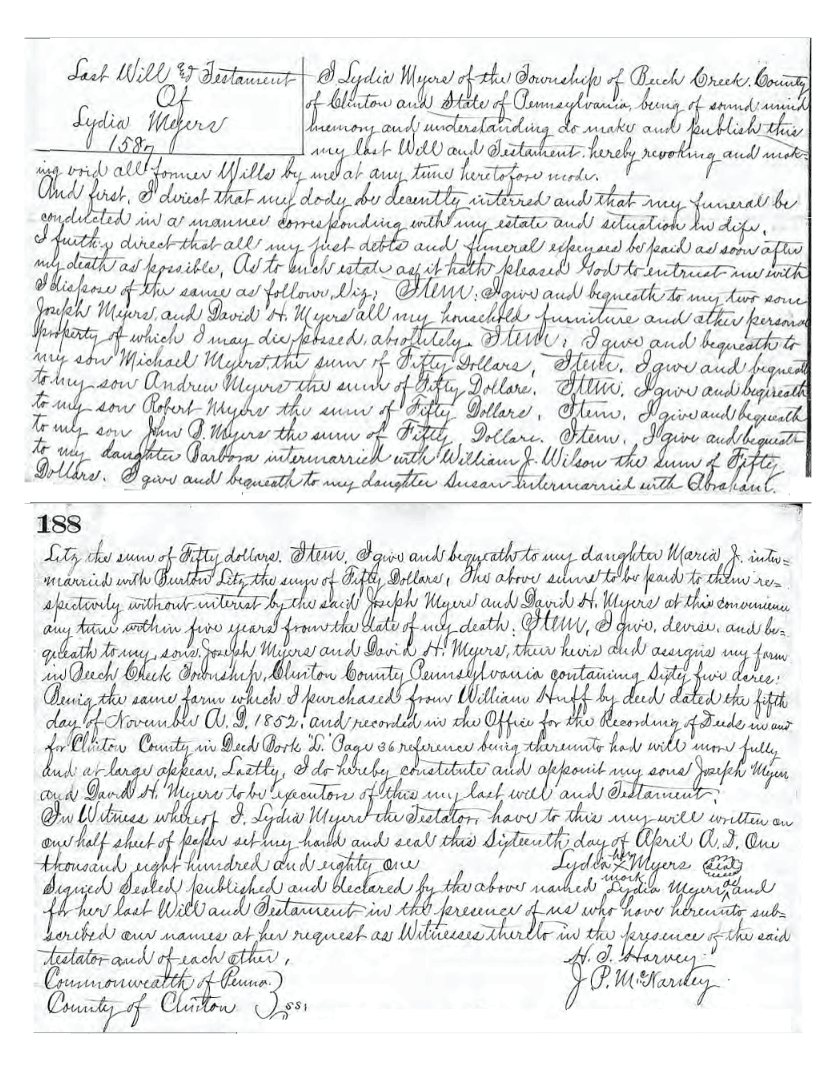 Last Will & Testament
Of
Lydia Meyers
1587
I Lydia Myers of the Township of Beech Creek. County
of Clinton and State of Pennsylvania, being of sound mind
memory and understanding do make and publish this
my last Will and Testament. hereby revoking and mak-
ing void all former Wills by me at any time heretofore made.
And first, I direct that my body be decently interred and that my funeral be
conducted in a manner corresponding with my estate and situation in life,
I further direct that all my just debts and funeral expenses be paid as soon after
my death as possible, As to such estate as it hath pleased God to entrust me with
I dispose of the same as follows, Viz: Item: I give and bequeath to my two sons
Joseph Myers, and David H. Myers all my household furniture and other personal
property of which I may die possed, absolutely. Item: I give and bequeath to
my son Michael Myers, the sum of Fifty Dollars, Item. I give and bequeath
to my son Andrew Myers the sum of Fifty Dollars. Item. I give and bequeath
to my son Robert Myers the sum of Fifty Dollars, Item, I give and bequeath
to my son John P. Myers the sum of Fifty Dollars. Item, I give and bequeath
to my daughter Barbora intermarried with William J. Wilson the sum of Fifty
Dollars. I give and bequeath to my daughter Susan intermarried with Abraham.
188
Litz the sum of Fifty dollars. Item, I give and bequeath to my daughter Maria J. inter=
married with Burton Litz the sum of Fifty Dollars, The above sums to be paid to them re=
spectively without interest by the said Joseph Myers and David H. Myers at this convenience
any time within five years from the date of my death: Item, I give, devise, and be-
queath to my, sons, Joseph Myers and David H. Myers, their heirs and assigns my farm
in Beech Creek Township, Clinton County Pennsylvania containing Sixty five acres:
Being the same farm which I purchased from William Huff by deed dated the fifth
day of November A. D. 1852. and recorded in the Office for the Recording of Deeds in and
for Clinton County in Deed Book "L" Page 36 reference being thereunto had will more fully
and at large appear. Lastly, I do hereby constitute and appoint my sons Joseph Myers
and David H. Myers to be executors of this my last will and Testament;
In Witness whereof I, Lydia Myers the Testator, have to this my will written on
one half sheet of paper set my hand and seal this Sixteenth day of April A. D. One
thousand eight hundred and eighty one Lydia her X mark Myers seal
Signed Sealed published and declared by the above named Lydia Meyers, as and
for her last Will and Testament in the presence of us who have hereunto sub=
scribed our names at her request as Witnesses thereto in the presence of the said
testator and of each other,
H. T. Harvey.
Commonwealth of Penna.
J P. McNarney.
County of Clinton } ss,